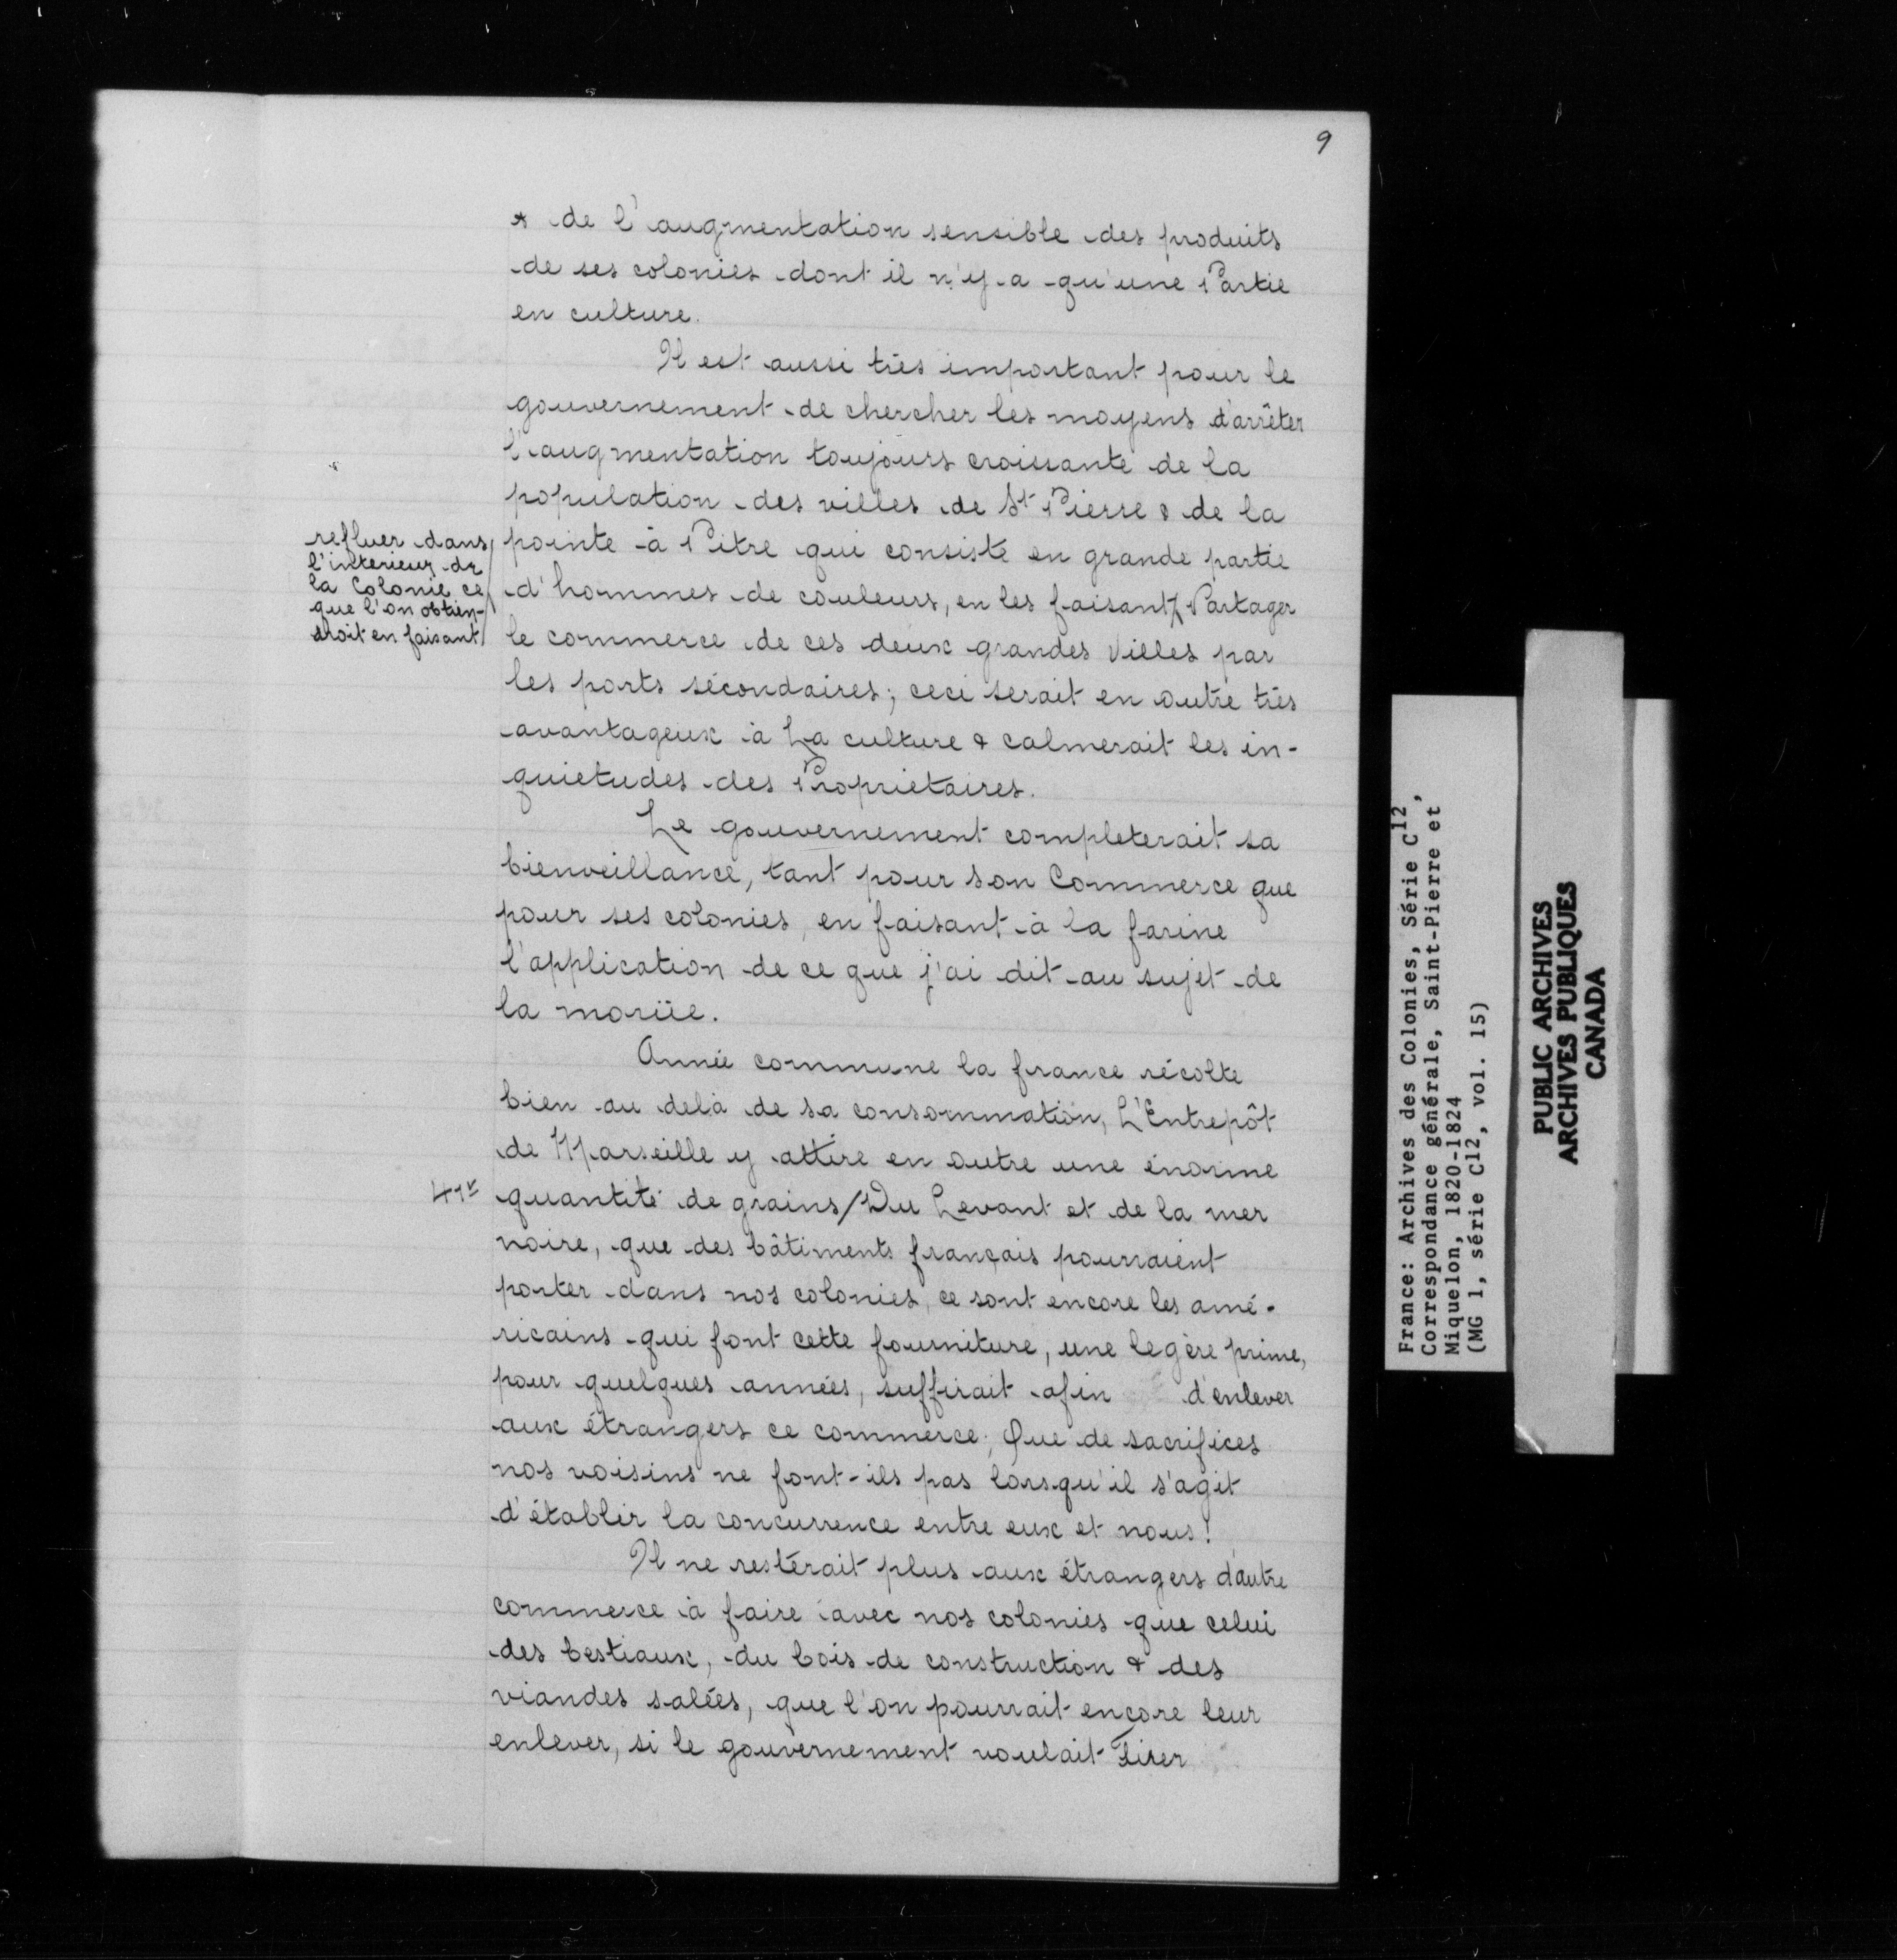 9
* de l'augmentation sensible des produits
de ses colonies dont il n'y a qu'une Partie
en culture.
Il est aussi très important pour le
gouvernement de chercher les moyens d'arrêter
l'augmentation toujours croissante de la
population des villes de St Pierre & de la
pointe à Pitre qui consiste en grande partie
d'hommes de couleurs, en les faisant/ Partager
refluer dans
l'interieur de
la Colonie ce
que l'on obtien-
droit en faisant/
le commerce de ces deux grandes Villes par
les ports sécondaires; ceci serait en outre très
avantageux à La culture & calmerait les in-
quietudes des Proprietaires.
Le gouvernement completerait sa
bienveillance, tant pour son Commerce que
pour ses colonies, en faisant à la farine
l'application de ce que j'ai dit au sujet de
la morüe.
Année commune la france récolte
bien au delà de sa consommation, L'Entrepôt
de Marseille y attire en outre une énorme
41v
quantité de grains/Du Levant et de la mer
noire, que des bâtiments français pourraient
porter dans nos colonies, ce sont encore les amé-
ricains qui font cette fourniture, une legère prime,
pour quelques années, suffirait afin d'enlever
aux étrangers ce commerce; Que de sacrifices
nos voisins ne font-ils pas lorsqu'il s'agit
d'établir la concurrence entre eux et nous!
Il ne resterait plus aux étrangers d'autre
commerce à faire avec nos colonies que celui
des bestiaux, du bois de construction & des
viandes salées, que l'on pourrait encore leur
enlever, si le gouvernement voulait Tirer
France: Archives des Colonies, Série C12,
Correspondance générale, Saint-Pierre et
Miquelon, 1820-1824
(MG 1, série C12, vol. 15)
PUBLIC ARCHIVES
ARCHIVES PUBLIQUES
CANADA